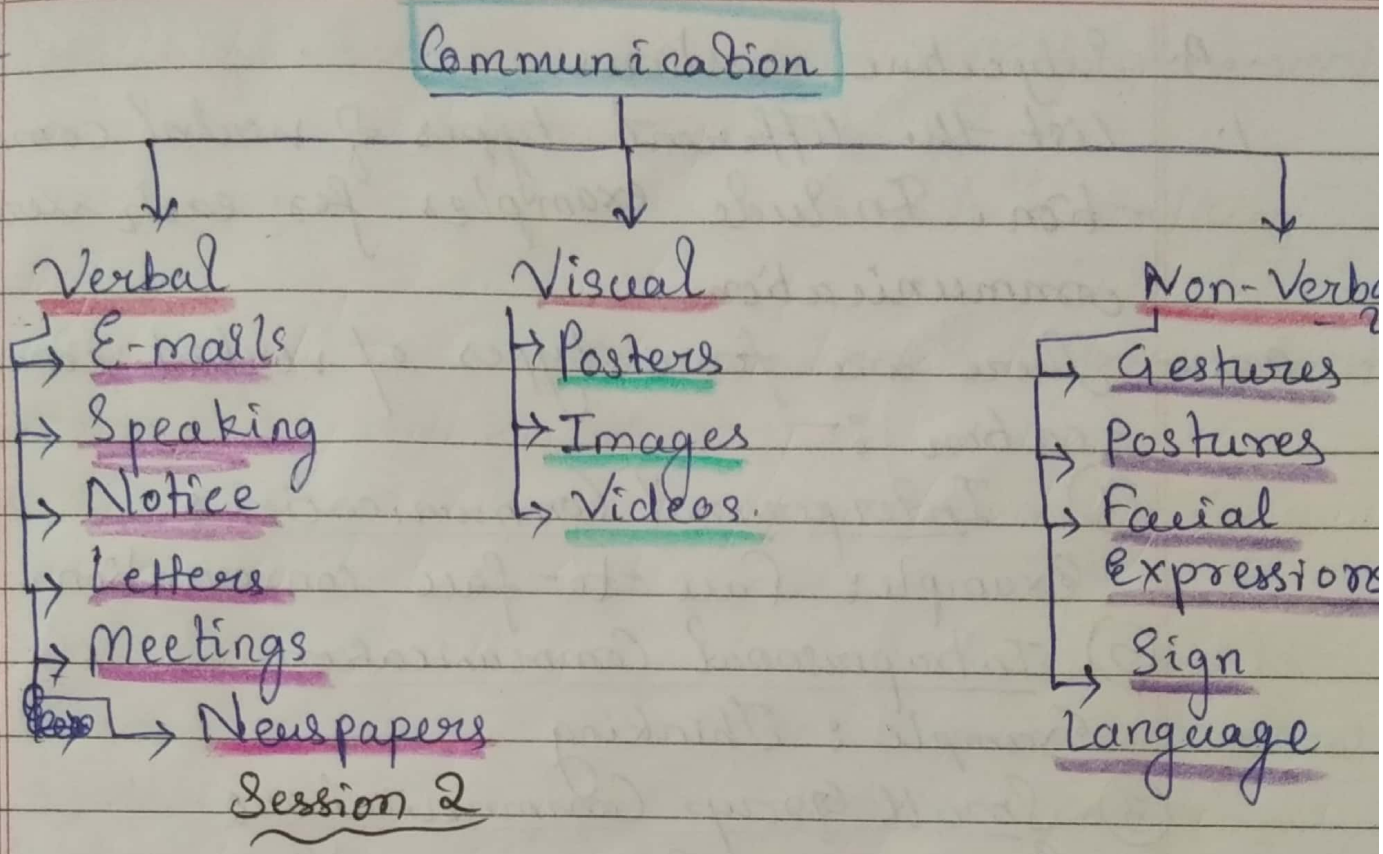 Communication
Verbal
E-mails
Speaking
Notice
Letters
Meetings
Newspapers
Session 2
Visual
Posters
Images
Videos.
Non-Verba
Gestures
Postures
Facial
Expressions
Sign
Language